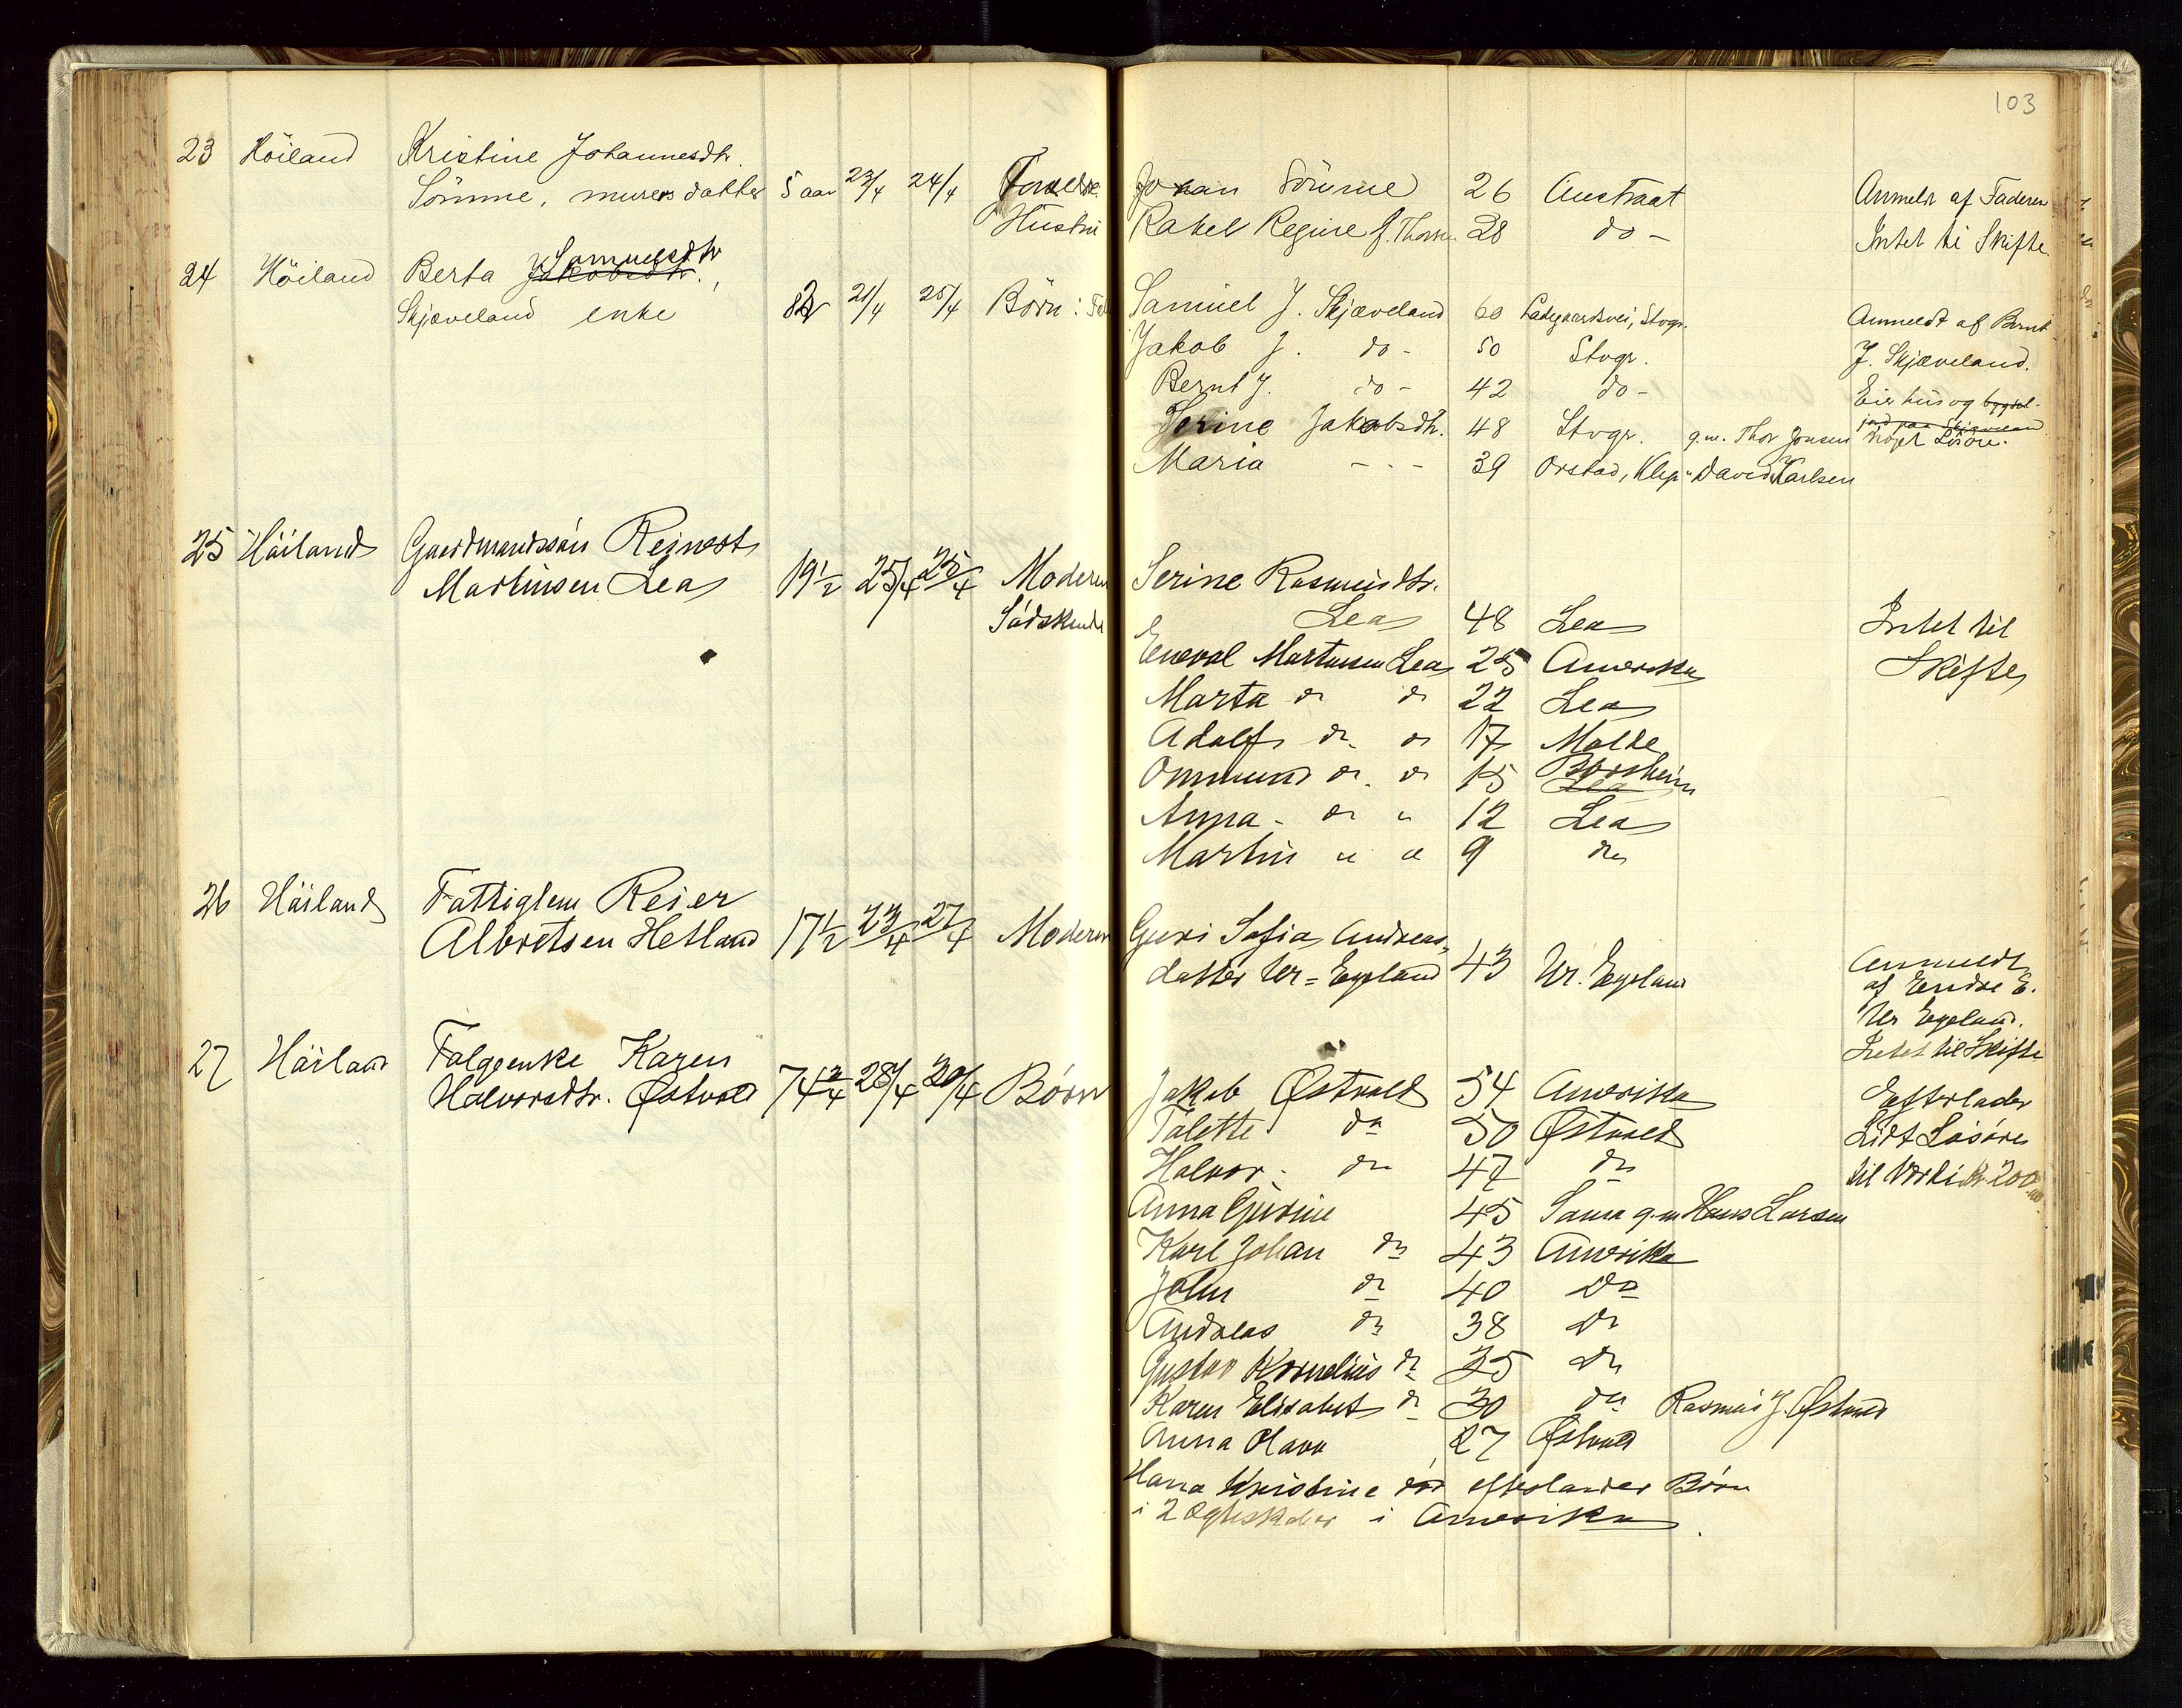 103
23 Höiland Kristine Johannesdtr.
Sömme, murers datter 5 aar 23/4 24/4 Forældre Johan Sömme 26 Austraat Anmeldt af Faderen
Hustru Rakel Regine f. Thorsen 28 do - Intet til Skifte.
24 Höiland Berta Jakobsdtr. Samuelsdtr.,
Skjæveland enke 82 21/4 25/4 Börn: Samuel J. Skjæveland 60 Ladegaardsvei, Stvgr. Anmeldt af Bernt
Jakob J. do - 50 Stvgr. J. Skjæveland.
Bernt J. do - 42 do - Eier hus og bygsel-
jord paa Skjæveland
Serine Jakobsdtr. 48 Stvgr. g.m. Thor Jonsen noget Lösöre.
Maria - . - 39 Orstad, Klep " David Karlsen
25 Häiland Gaardmandssön Reinert
Martinsen Lea 19 1/2 25/4 25/4 Moderen Serine Rasmusdtr.
Södskende Lea 48 Lea Intet til
Eneval Martinsen Lea 25 Amerika Skifte
Marta do do 22 Lea
Adolf do do 17 Malde
Ommund do do 15 Lea Borsheim
Anna - do " 12 Lea
Martin " " 9 do
26 Häiland Fattiglem Reier
Albretsen Hetland 17 1/2 23/4 27/4 Moderen Guri Sofia Andreas-
datter Ur=Egeland 43 Ur. Egeland Anmeldt
af Endre E.
Ur Egeland.
Intet til Skifte
27 Häiland Folgeenke Karen
Halvorsdtr. Østvold 74 3/4 28/4 30/4 Börn Jakob Østvold 54 Amerika Efterlader
Talette do 50 Østvold Lidt Lösöre
Halvor - do 47 do til Værdi Kr. 200
Anna Gurine 45 Sama g.m Hans Larsen
Karl Johan do 43 Amerika
John do 40 do
Andreas do 38 do
Gustav Kornelius do 35 do
Karen Elisabet do 30 do Rasmus J. Østvold
Anna Olava 27 Østvold
Hana Kristine död efterlader Börn
i 2 Ægteskaber i Amerika.